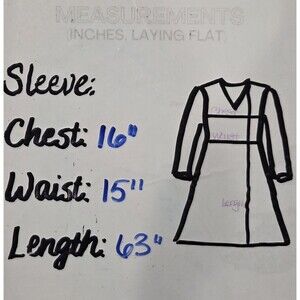 MEASUREMENTS
(INCHES, LAYING FLAT)
Sleeve:
Chest: 16"
Chest
Waist: 15"
Waist
Length: 63"
Length